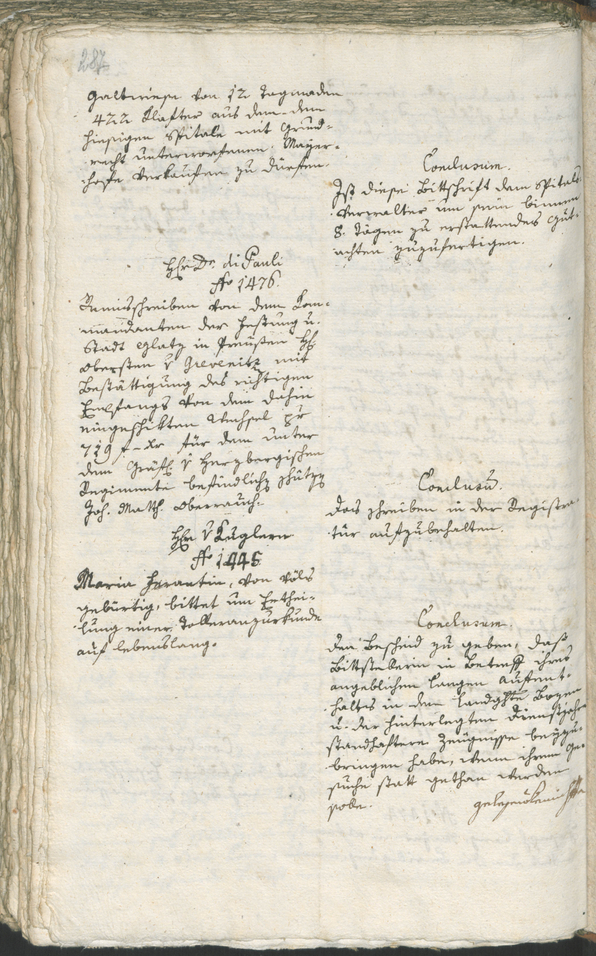 287
Galtwiesen von 12 Tagmaden
422 Klafter aus dem dem
hiesigen Spitale mit Grund-
recht unterworfenen Mayer-
hofe verkaufen zu dürfen.
Conclusum.
Ist diese Bittschrift dem Spitals
Verwalter um sein binnen
8. Tägen zu erstattendes Gut-
achten zuzufertigen.
Hr Dr. di Pauli
No 1476.
Remisschreiben von dem Kom-
mandanten der Festung u.
Stadt Glatz in Preußen H
Obersten v Grevenitz mit
Bestättigung des richtigen
Empfangs von dem dahin
eingeschikten Wechsel pr
719 f – xr für dem unter
dem Gräfl v Herzbergischen
Regimente befindlich Schützen
Joh. Math. Oberrauch.
Conclusum.
Das Schreiben in der Registra-
tur aufzubehalten.
Hr v Kuglern
No 1445
Maria, von Völs
gebürtig, bittet um Erthei-
lung einer Tolleranzurkunde
auf lebenslang.
Conclusum.
Den Bescheid zu geben, daß
Bittstellerin in Betreff ihres
angeblichen langen Aufent-
haltes in dem Landgchte Bozen
u. der hinterlegten Dienstjahre
standhaftere Zeugnisse beyzu-
bringen habe, wenn ihrem Ge-
suche statt gethan werden
solle.